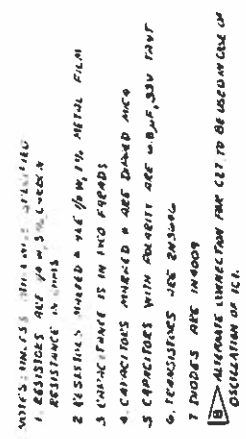 NOTES: UNLESS OTHERWISE SPECIFIED
1. RESISTORS ARE 1/4 W, 5%, CARBON
RESISTANCE IN OHMS
2 RESISTORS MARKED * ARE 1/8 W, 1% METAL FILM
3 CAPACITANCE IS IN MICROFARADS
4. CAPACITORS MARKED * ARE DIPPED MICA
5 CAPACITORS WITH POLARITY ARE 6.8µF, 35V TANT
6. TRANSISTORS ARE
7 DIODES ARE 1N4009
8 ALTERNATE CONNECTION FOR C27 TO BE USED IN CASE OF
OSCILLATION OF IC1.